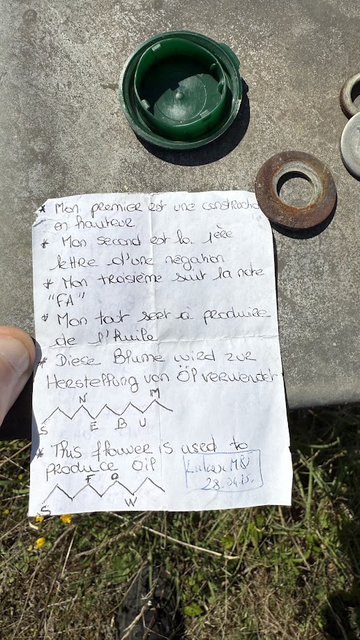 * Mon premier est une construction
en hauteur
* Mon second est la 1ère
lettre d'une négation
* Mon troisième suit la note
"FA"
* Mon tout sert à produire
de l'huile
* Diese Blume wird zur
Herstellung von Öl verwendet
N M
S E B U
* This flower is used to
produce oil
F O
S W
28.04.15.